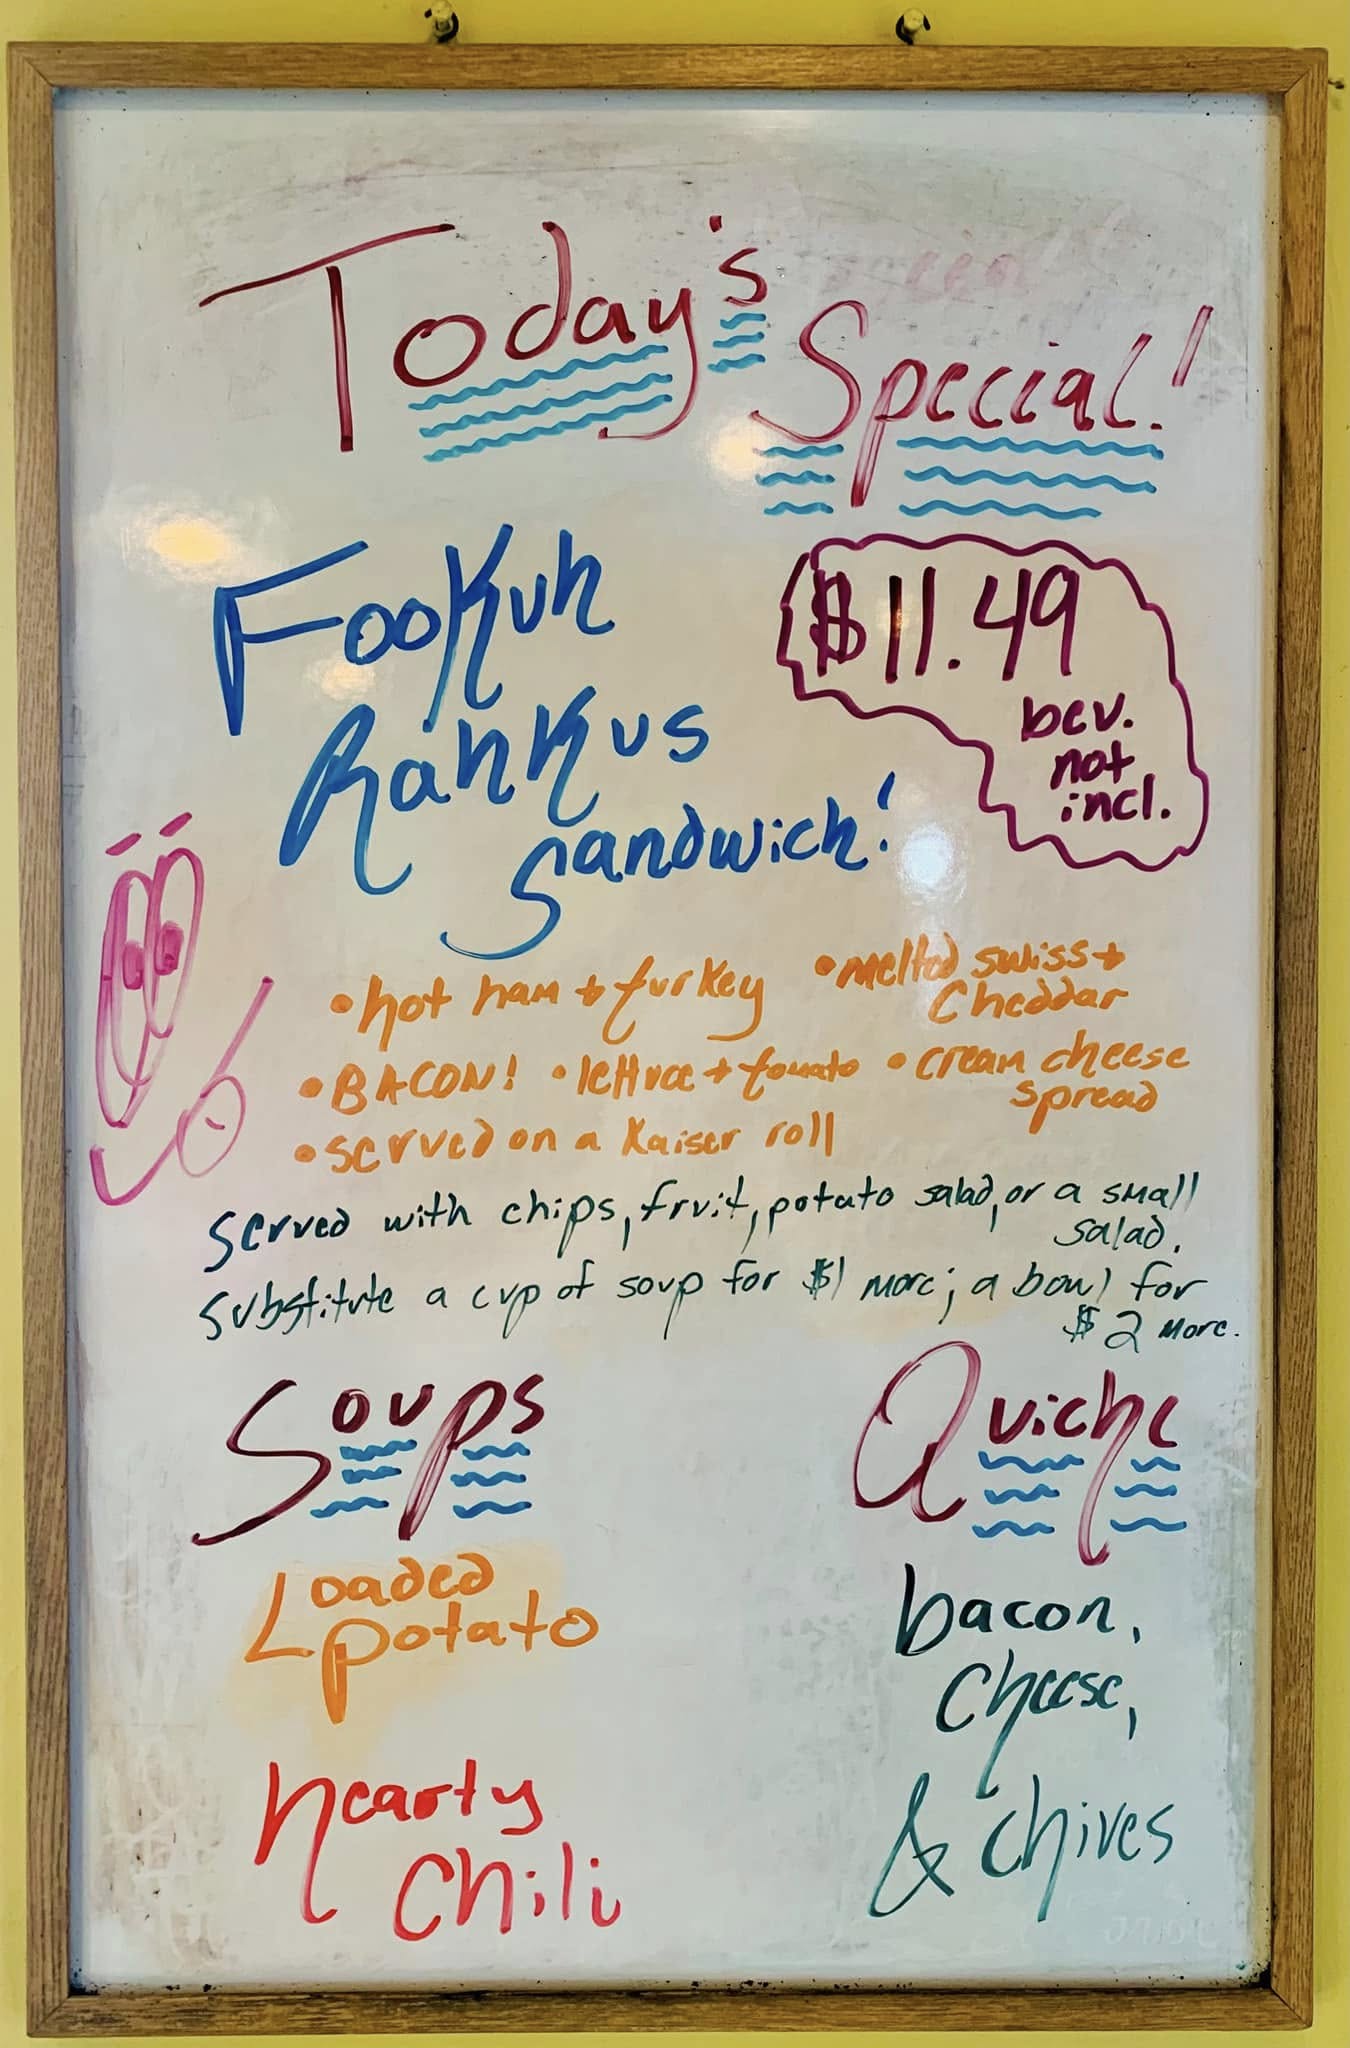 Today's
Special!
Fookuh
Rahkkus
Sandwich!
$11.49
bev.
not
incl.
• hot ham + turkey
• melted swiss +
cheddar
• BACON!
• lettuce + tomato
• cream cheese
spread
• served on a Kaiser roll
Served with chips, fruit, potato salad, or a small
salad.
Substitute a cup of soup for $1 more; a bowl for
$2 more.
Soups
Loaded
potato
hearty
chili
Quiche
bacon,
cheese,
& chives